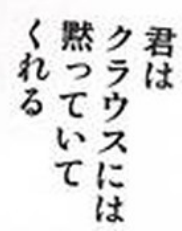 君は
クラウスには
黙っていて
くれる